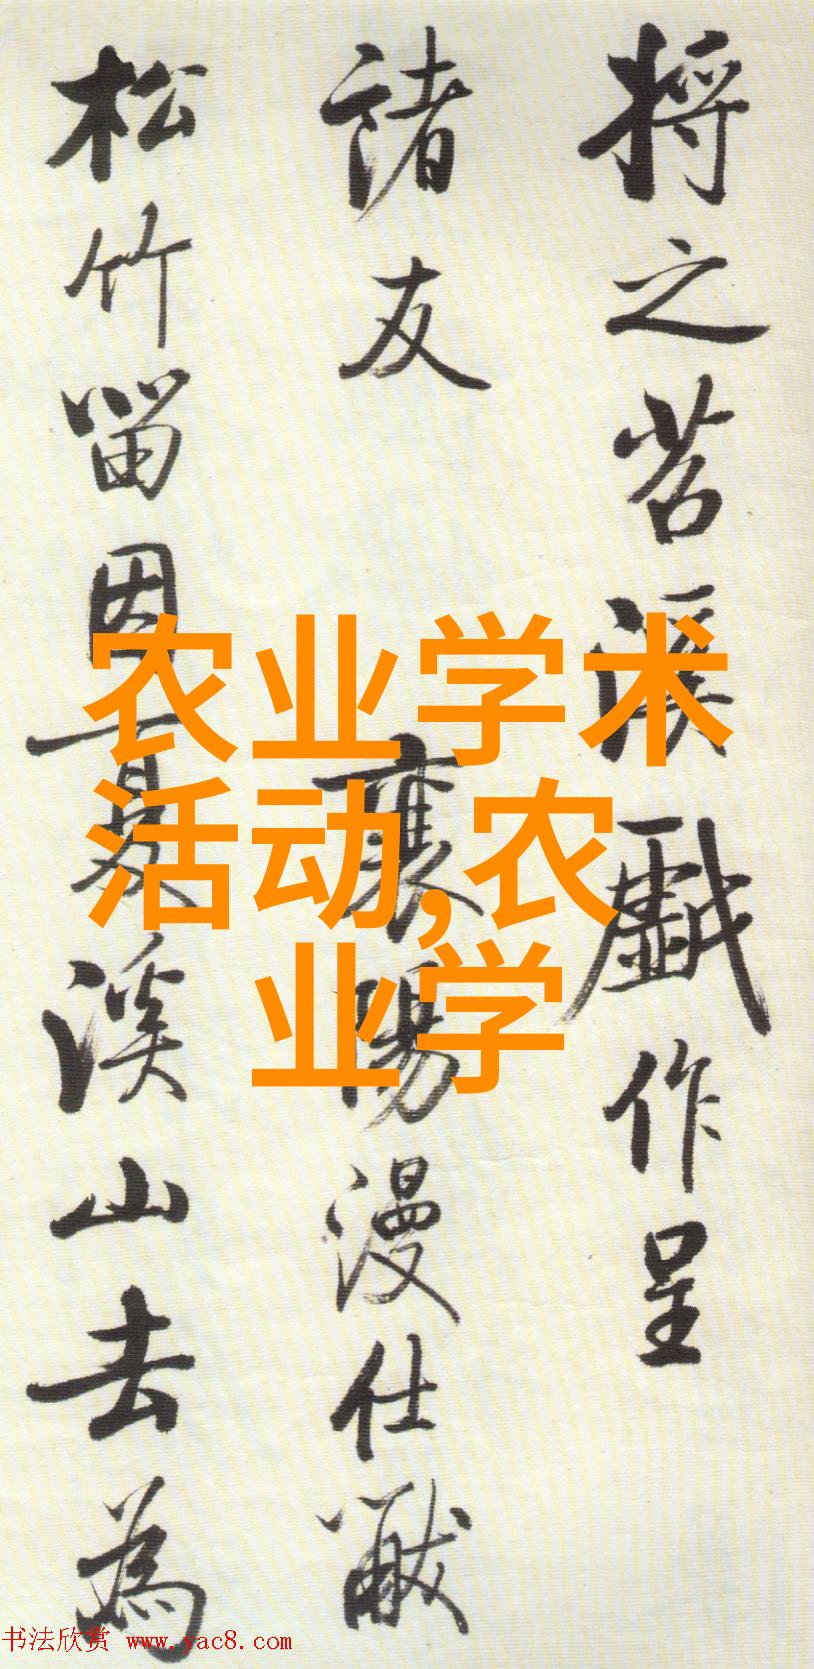 将之苕溪戯作呈
諸友
襄陽漫仕黻
松竹留因夏溪山去為
农业学术
活动,农
业学
书法欣赏 www.yac8.com